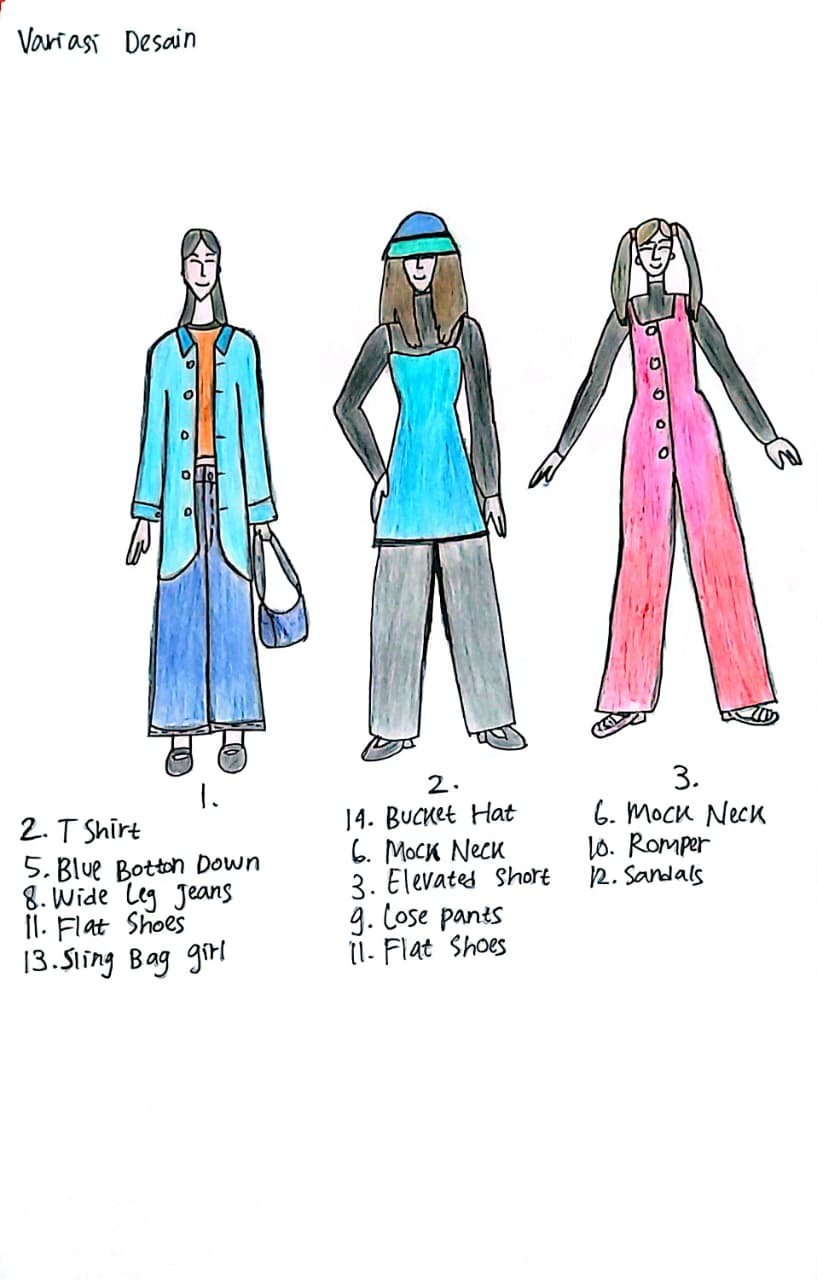 Variasi Desain
1.
2. T Shirt
5. Blue Botton Down
8. Wide Leg Jeans
11. Flat Shoes
13. Sling Bag girl
2.
14. Bucket Hat
6. Mock Neck
3. Elevated Short
9. Lose pants
11. Flat Shoes
3.
6. Mock Neck
10. Romper
12. Sandals